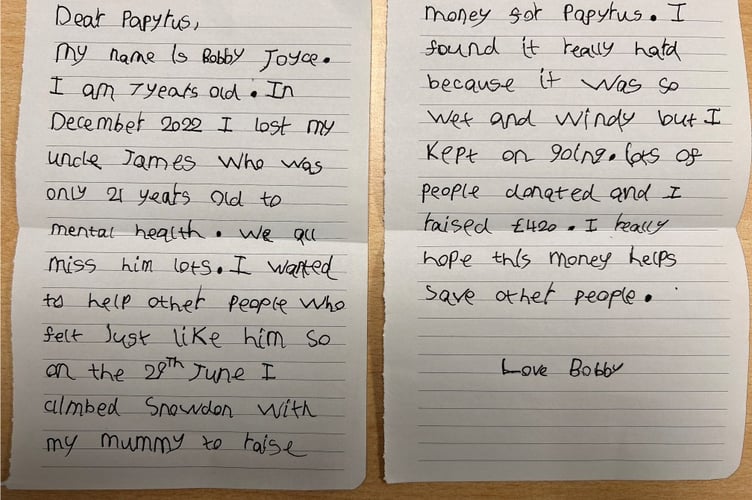 Dear Papyrus,
My name is Bobby Joyce.
I am 7 years old. In
December 2022 I lost my
uncle James who was
only 21 years old to
mental health. We all
miss him lots. I wanted
to help other people who
felt just like him so
on the 29th June I
climbed Snowdon with
my mummy to raise
money for Papyrus. I
found it really hard
because it was so
wet and windy but I
kept on going. Lots of
people donated and I
raised £420. I really
hope this money helps
save other people.
Love Bobby